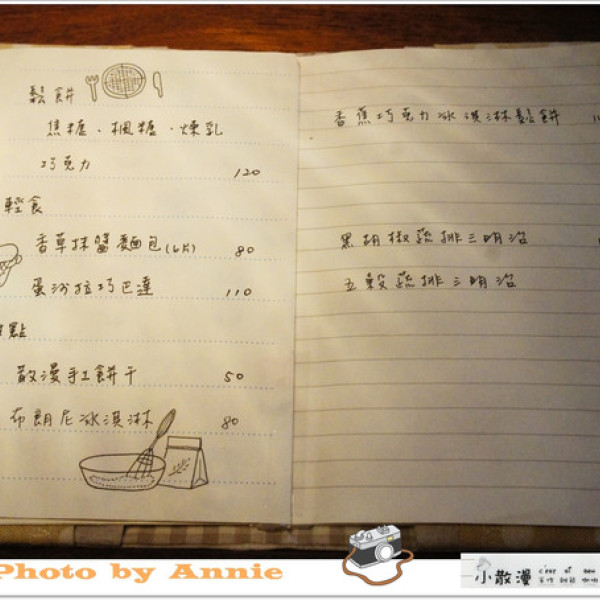 鬆餅
焦糖、楓糖、煉乳
巧克力 120
輕食
香草抹醬麵包(6片) 80
蛋沙拉巧巴達 110
點
散漫手工餅干 50
布朗尼冰淇淋 80
香蕉巧克力冰淇淋鬆餅
黑胡椒蔬排三明治
五穀蔬排三明治
Photo by Annie
小散漫